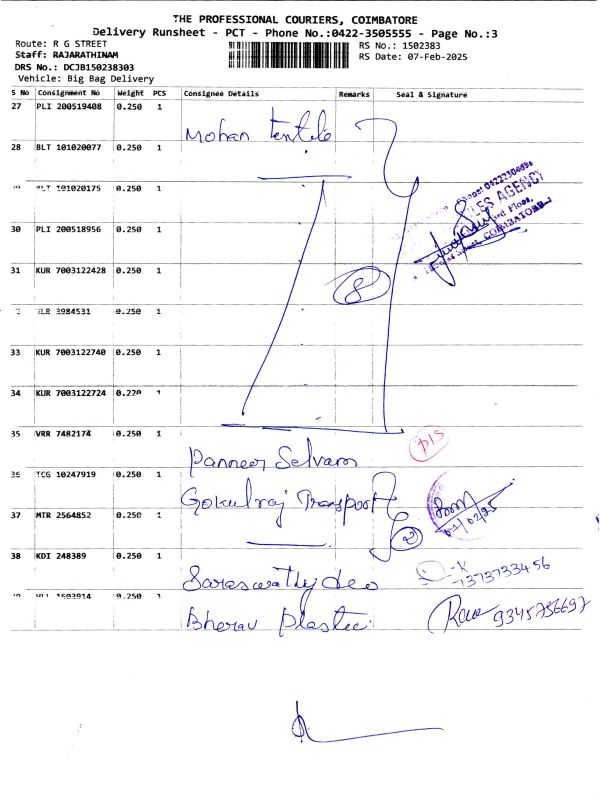 THE PROFESSIONAL COURIERS, COIMBATORE
Delivery Runsheet - PCT - Phone No.:0422-3505555 - Page No.:3
Route: R G STREET
RS No.: 1502383
Staff: RAJARATHINAM
RS Date: 07-Feb-2025
DRS No.: DCJB150238303
Vehicle: Big Bag Delivery
S No Consignment No Weight PCS Consignee Details Remarks Seal & Signature
27 PLI 200519408 0.250 1 Mohan Textile
28 BLT 101020077 0.250 1
101020175 0.250 1
30 PLI 200518956 0.250 1
SALES AGENCY
COIMBATORE
31 KUR 7003122428 0.250 1 8
3984531 0.250 1
33 KUR 7003122740 0.250 1
34 KUR 7003122724 0.220 1
35 VRR 7482174 0.250 1 Panneer Selvam P15
36 TCG 10247919 0.250 1 Gokulraj Transport
37 MTR 2564852 0.250 1 2
07/02/25
38 KDI 248389 0.250 1 Saraswathy deo
1603914 0.250 1 Bherav Plastic
9345756697